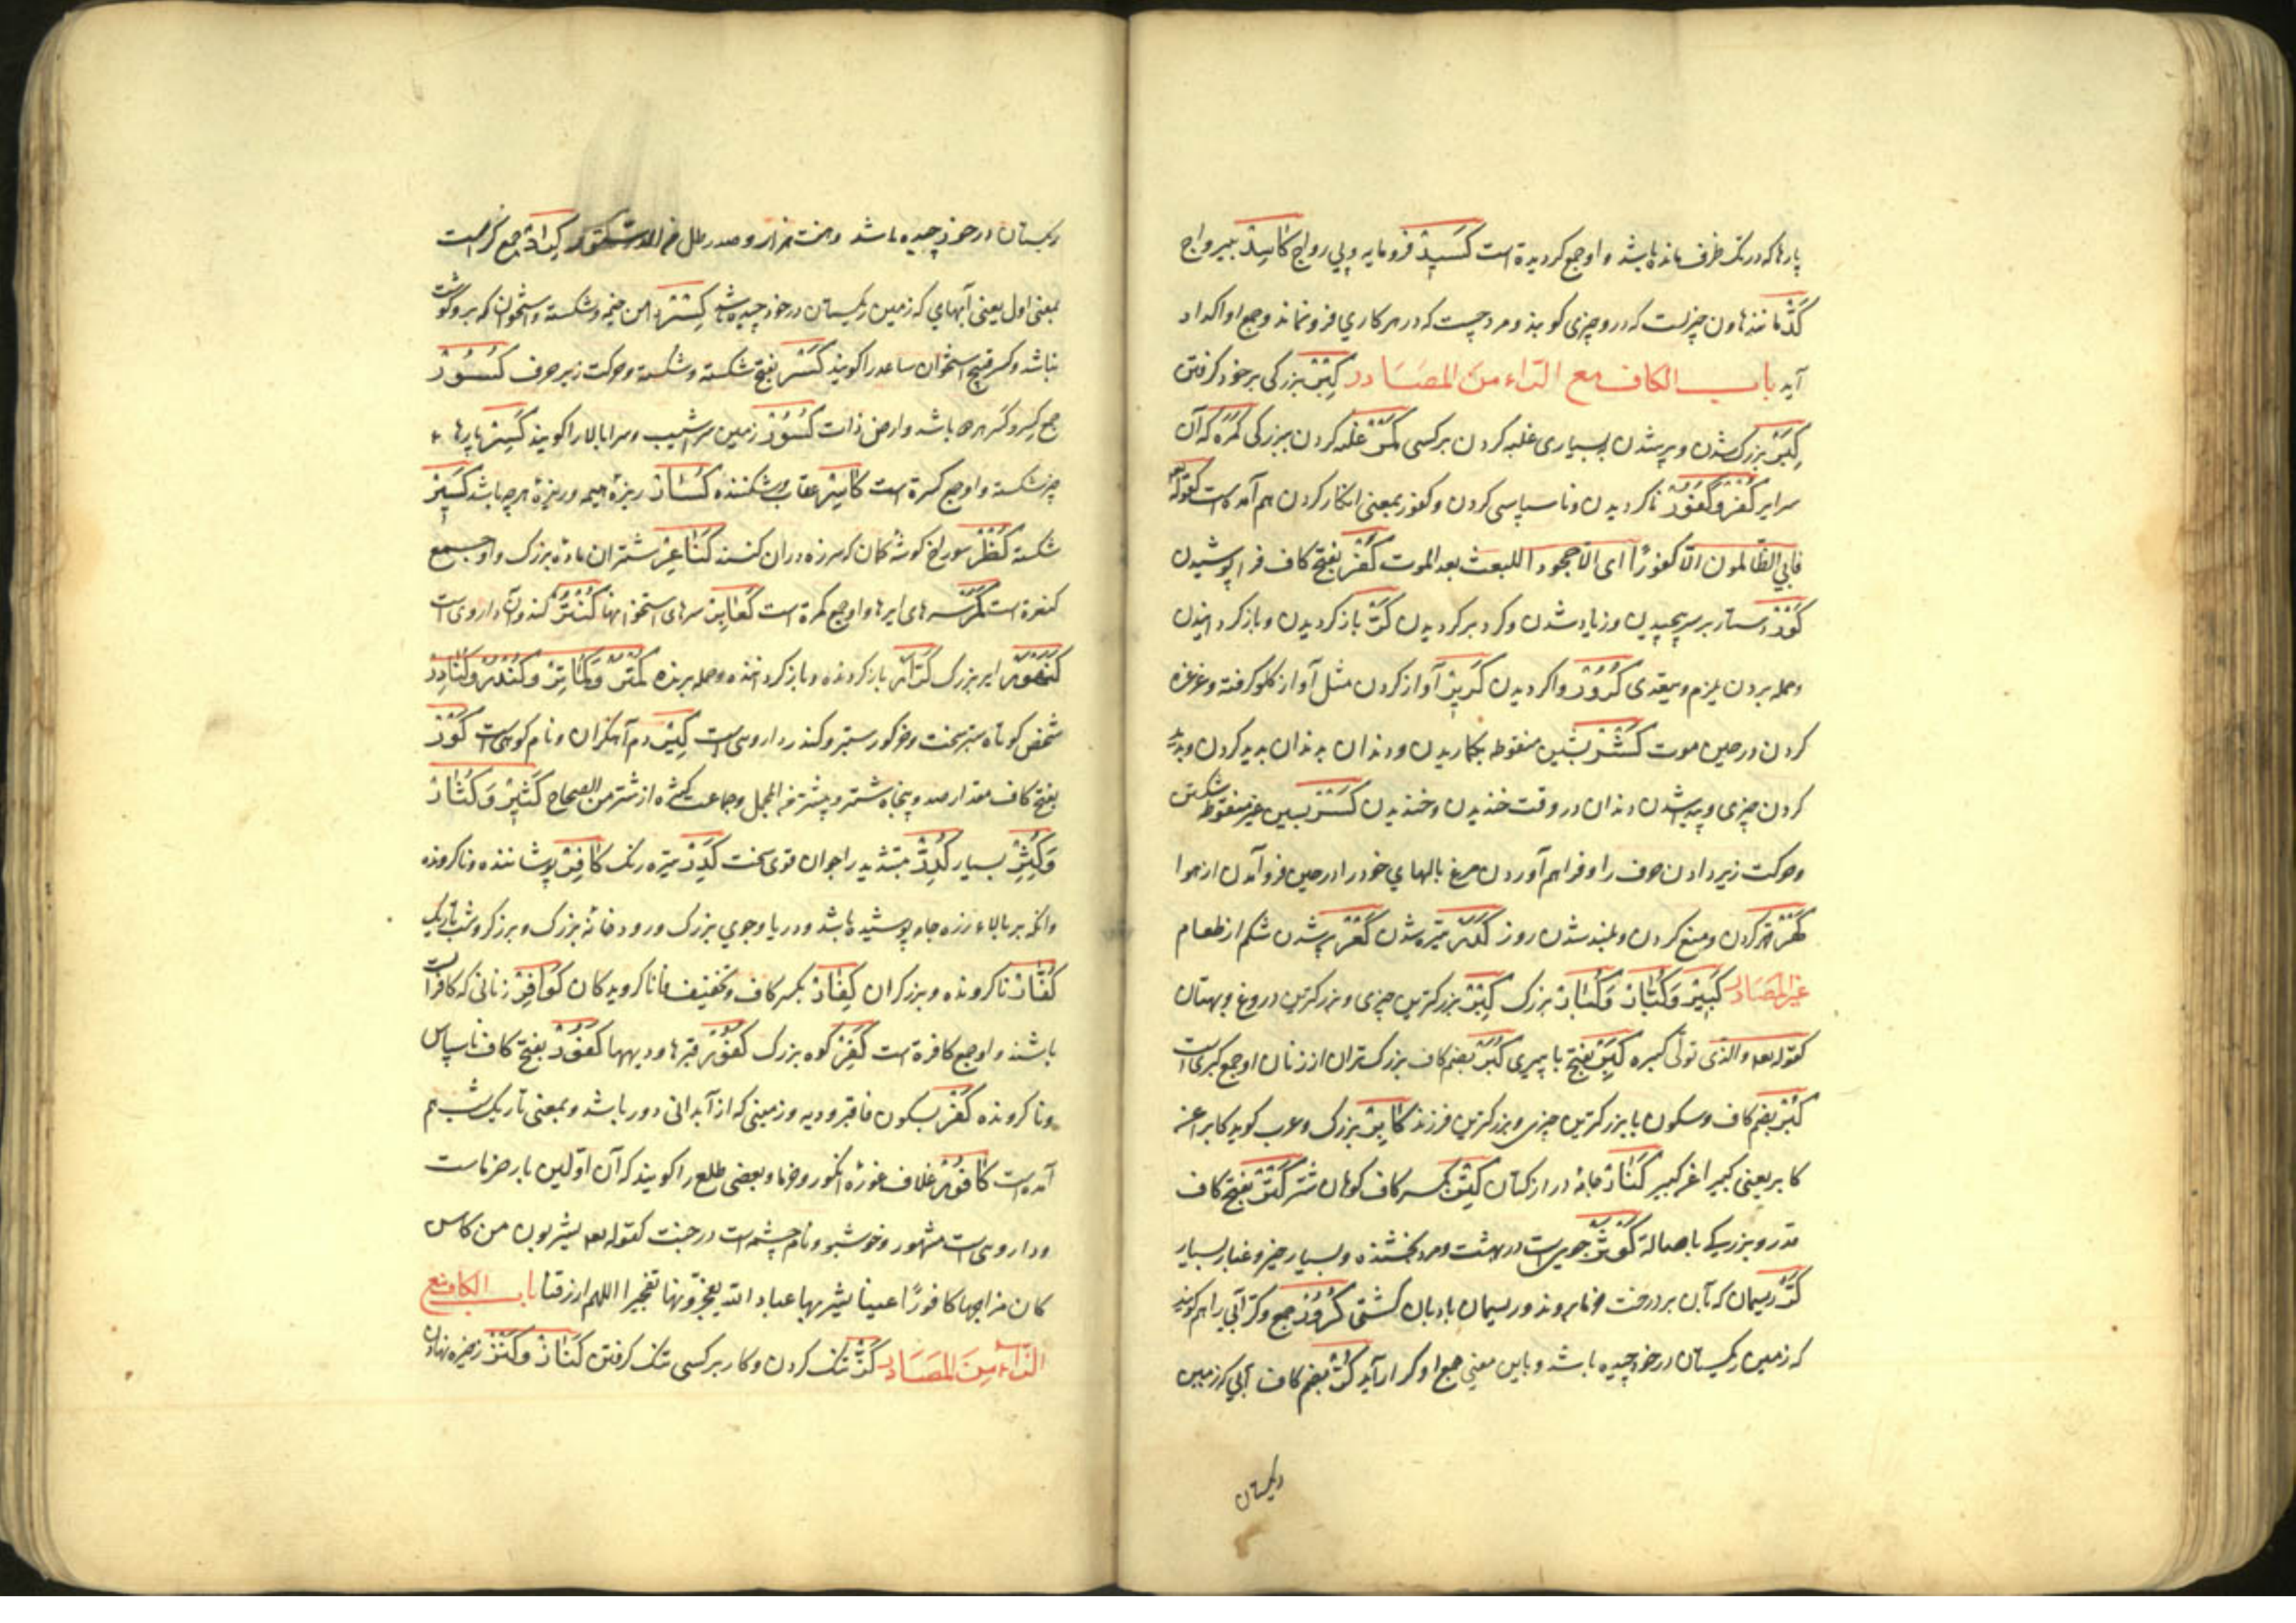 پارها که در تک ظرف مانده باشد و او جمع کردیدة است کَسِیدْ فرومایه و بی رواج کَاسِدْ بیرواج
کَدّ مانند هاون چیزیست که درو چیزی کوبند و مردیست که در هر کاری فرو نماند و جمع او اکداد
آید باب الکاف مع الراء من المصَادر کِبْر بزرکی بر خود کرفتن
کِبَر بزرک شدن و پیر شدن بسیاری غلبه کردن بر کسی کَمْر غلبه کردن ببزرکی کمره که آن
سرایر کُفْر و کُفُور ناکردیدن و ناسپاسی کردن و کفور بمعنی انکار کردن هم آمده است کقوله تعه
فابی الظالمون الّا کفورًا ای الّا جحودا للبعث بعد الموت کَفْر بفتح کاف فرا پوشیدن
کَوْر دستار بر سر پیچیدن و زیاد شدن و کرد بر کردیدن کَرّ باز کردیدن و باز کردانیدن
و حمله بردن یلزم و یتعدی کُرُور واکردیدن کَرِیر آواز کردن مثل آواز کلو کرفته و غرغره
کردن در حین موت کَشْر بشین منقوطه بکاریدن و دندان بدندان پدید کردن و پدید
کردن چیزی و پیدا شدن دندان در وقت خندیدن و خندیدن کَسْر بسین غیر منقوطه شکستن
و حرکت زیر دادن حرف را و فراهم آوردن مرغ بالهای خود را در حین فرو آمدن از هوا
کَهْر قهر کردن و منع کردن و بلند شدن روز کَدَر تیره شدن کَعَر پر شدن شکم از طعام
غیر المصَادر کَبِیر وَکُبَّار وَکُبَار بزرک کِبْر بزرکترین چیزی و بزرکترین دروغ و بهتان
کقوله تعه والذی تولّی کبره کِبَر بفتح با پیری کُبَر بضم کاف بزرکستران از زنان او جمع کبری است
کُبْر بضم کاف و سکون با بزرکترین چیزی و بزرکترین فرزند کَابِر بزرک و عرب کوید کابرا عن
کابر یعنی کبیرا عن کبیر کَتَّار جامه دراز کتان کِتْر بکسر کاف کوهان شتر کَتْر بفتح کاف
قدر و بزرکی باصالة کَوْثَر جوییست در بهشت و مرد بخشنده و بسیار خیر و غبار بسیار
کَرّ ریسمان که بآن بر درخت خرما بروند و ریسمان بادبان کشتی کُرُور جمع و کر آبی را هم کویند
که زمین ریکستان در خود چیده باشد و باین معنی جمع او کرار آید کُرّ بضم کاف آبی که زمین
ریکستان
ریکستان در خود چیده باشد کِرَار جمع کر است
بمعنی اول یعنی آبهای که زمین ریکستان در خود چیده باشد کِسْر دامن خیمه و شکسته و استخوان که برو کوشت
نباشد و کسر قبیح استخوان ساعد را کویند کَسْر بفتح شکسته و شکسته و حرکت زیر حرف کُسُور
جمع کِسر و کَسر هر دو باشد و ارض ذات کُسُور زمین سراشیب و سرابالا را کویند کِسَر پارها
چیز شکسته و او جمع کسرة است کَاسِر عقاب و شکننده کُسَار ریزهٔ هیمه و ریزهٔ هرچه باشد کَسِیر
شکسته کُظْر سوراخ کوشهٔ کمان که سر زه دران کنند کَنَاعِر شتران مادهٔ بزرک و او جمع
کنعرة است کَمَر سرهای ایرها و او جمع کمرة است کَعَابِر سرهای استخوانها کُنْدُر کندو آن داروی است
کَنَهْوَر ابر بزرک کَرَّار باز کردنده و باز کرداننده و حمله برنده کُمْتُر وَکُمَاتِر وکُنْدُر وکُنَادِر
شخص کوتاه ستبر سخت و خر کور ستبر و کندر داروی است کِیر دم آهنکران و نام کوهی است کَوْر
بفتح کاف مقدار صد و پنجاه شتر و بیشتر فی المجمل و جماعت کثیره از شتر من الصحاح کَثِیر وَکُثَار
وَکَیْثَر بسیار کُدُرّ بتشدید را جوان قوی سخت کَدِر تیره رنک کَافِر پوشاننده و ناکرونده
و آنکه بر بالاء زره جامه پوشیده باشد و دریا و جوی بزرک و رودخانهٔ بزرک و برزکر و شب تاریک
کُفَّار ناکرونده و برزکران کِفَار بکسر کاف و تخفیف فا ناکرویدکان کَوَافِر زنانی که کافر است
باشند و او جمع کافرة است کَفِر کوه بزرک کُفُور قبرها و دیهها کَفُور بفتح کاف ناسپاس
و ناکرونده کَفْر بسکون فا قبر و دیه و زمینی که از آبدانی دور باشد و بمعنی تاریک شب هم
آمده است کَافُور غلاف غورهٔ انکور و خرما و بعضی طلع را کویند که آن اوّلین بار خرماست
و داروی است مشهور و خوشبو و نام چشمه است در جنت کقوله تعه یشربون من کاس
کان مزاجها کافورًا عینا یشرب بها عباد الله یفجرونها تفجیرا اللهم ارزقنا باب الکاف مع
الزاء مِنَ المصَادر کَزّ تنک کردن و کار بر کسی تنک کرفتن کَنَاز وَکَنْز ذخیره نهادن